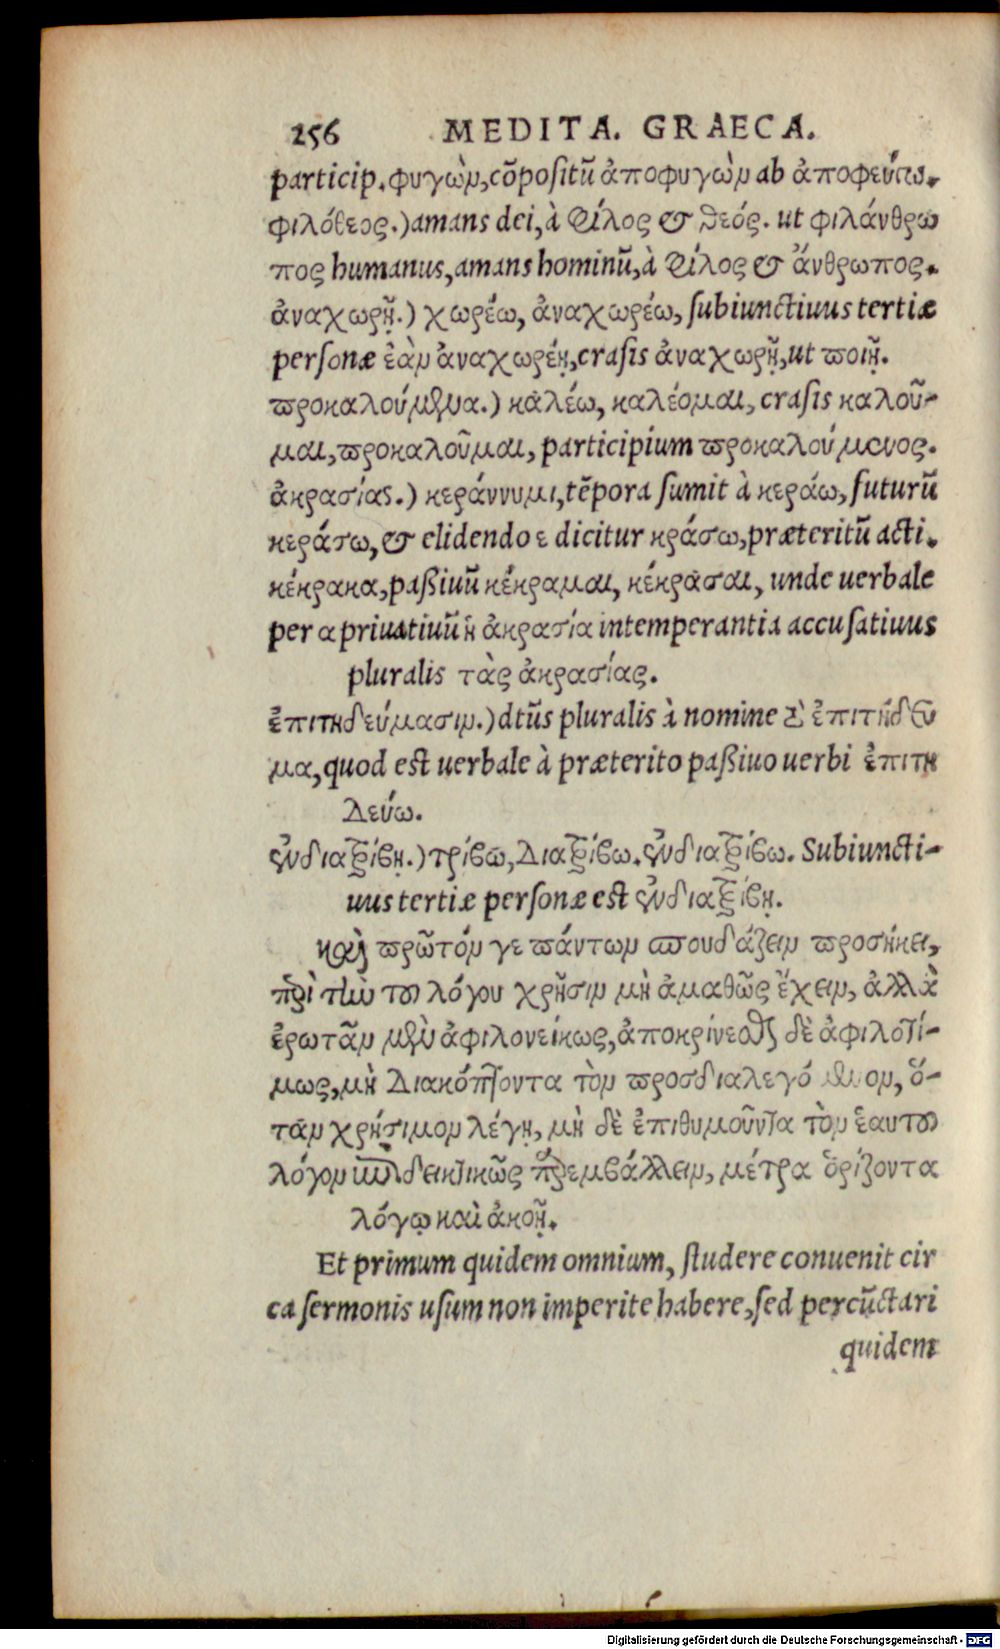 256 MEDITA. GRAECA.
particip. φυγὼν, cōpositū ἀποφυγὼν ab ἀποφεύγω.
φιλόθεος.) amans dei, à φίλος & θεός. ut φιλάνθρω
πος humanus, amans hominū, à φίλος & ἄνθρωπος.
ἀναχωρῇ.) χωρέω, ἀναχωρέω, subiunctiuus tertiæ
personæ ἐὰν ἀναχωρέῃ, crasis ἀναχωρῇ, ut ποιῇ.
προκαλούμενα.) καλέω, καλέομαι, crasis καλοῦ-
μαι, προκαλοῦμαι, participium προκαλούμενος.
ἀκρασίας.) κεράννυμι, tēpora sumit à κεράω, futurū
κεράσω, & elidendo ε dicitur κράσω, præteritū acti.
κέκρακα, paßiuū κέκραμαι, κέκρασαι, unde uerbale
per α priuatiuū ἡ ἀκρασία intemperantia accusatiuus
pluralis τὰς ἀκρασίας.
ἐπιτηδεύμασιν.) dtūs pluralis à nomine τὸ ἐπιτήδευ
μα, quod est uerbale à præterito paßiuo uerbi ἐπιτη
δεύω.
συνδιατρίβῃ.) τρίβω, διατρίβω. συνδιατρίβω. Subiuncti-
uus tertiæ personæ est συνδιατρίβῃ.
καὶ πρῶτόν γε πάντων σπουδάζειν προσήκει,
περὶ τὴν τοῦ λόγου χρῆσιν μὴ ἀμαθῶς ἔχειν, ἀλλὰ
ἐρωτᾶν μὲν ἀφιλονείκως, ἀποκρίνεσθαι δὲ ἀφιλοτί-
μως, μὴ διακόπτοντα τὸν προσδιαλεγόμενον, ὅ-
ταν χρήσιμον λέγῃ, μὴ δὲ ἐπιθυμοῦντα τὸν ἑαυτοῦ
λόγον ἐπιδεικτικῶς παρεμβάλλειν, μέτρα ὁρίζοντα
λόγῳ καὶ ἀκοῇ.
Et primum quidem omnium, studere conuenit cir
ca sermonis usum non imperite habere, sed percūctari
quidem
Digitalisierung gefördert durch die Deutsche Forschungsgemeinschaft - DFG